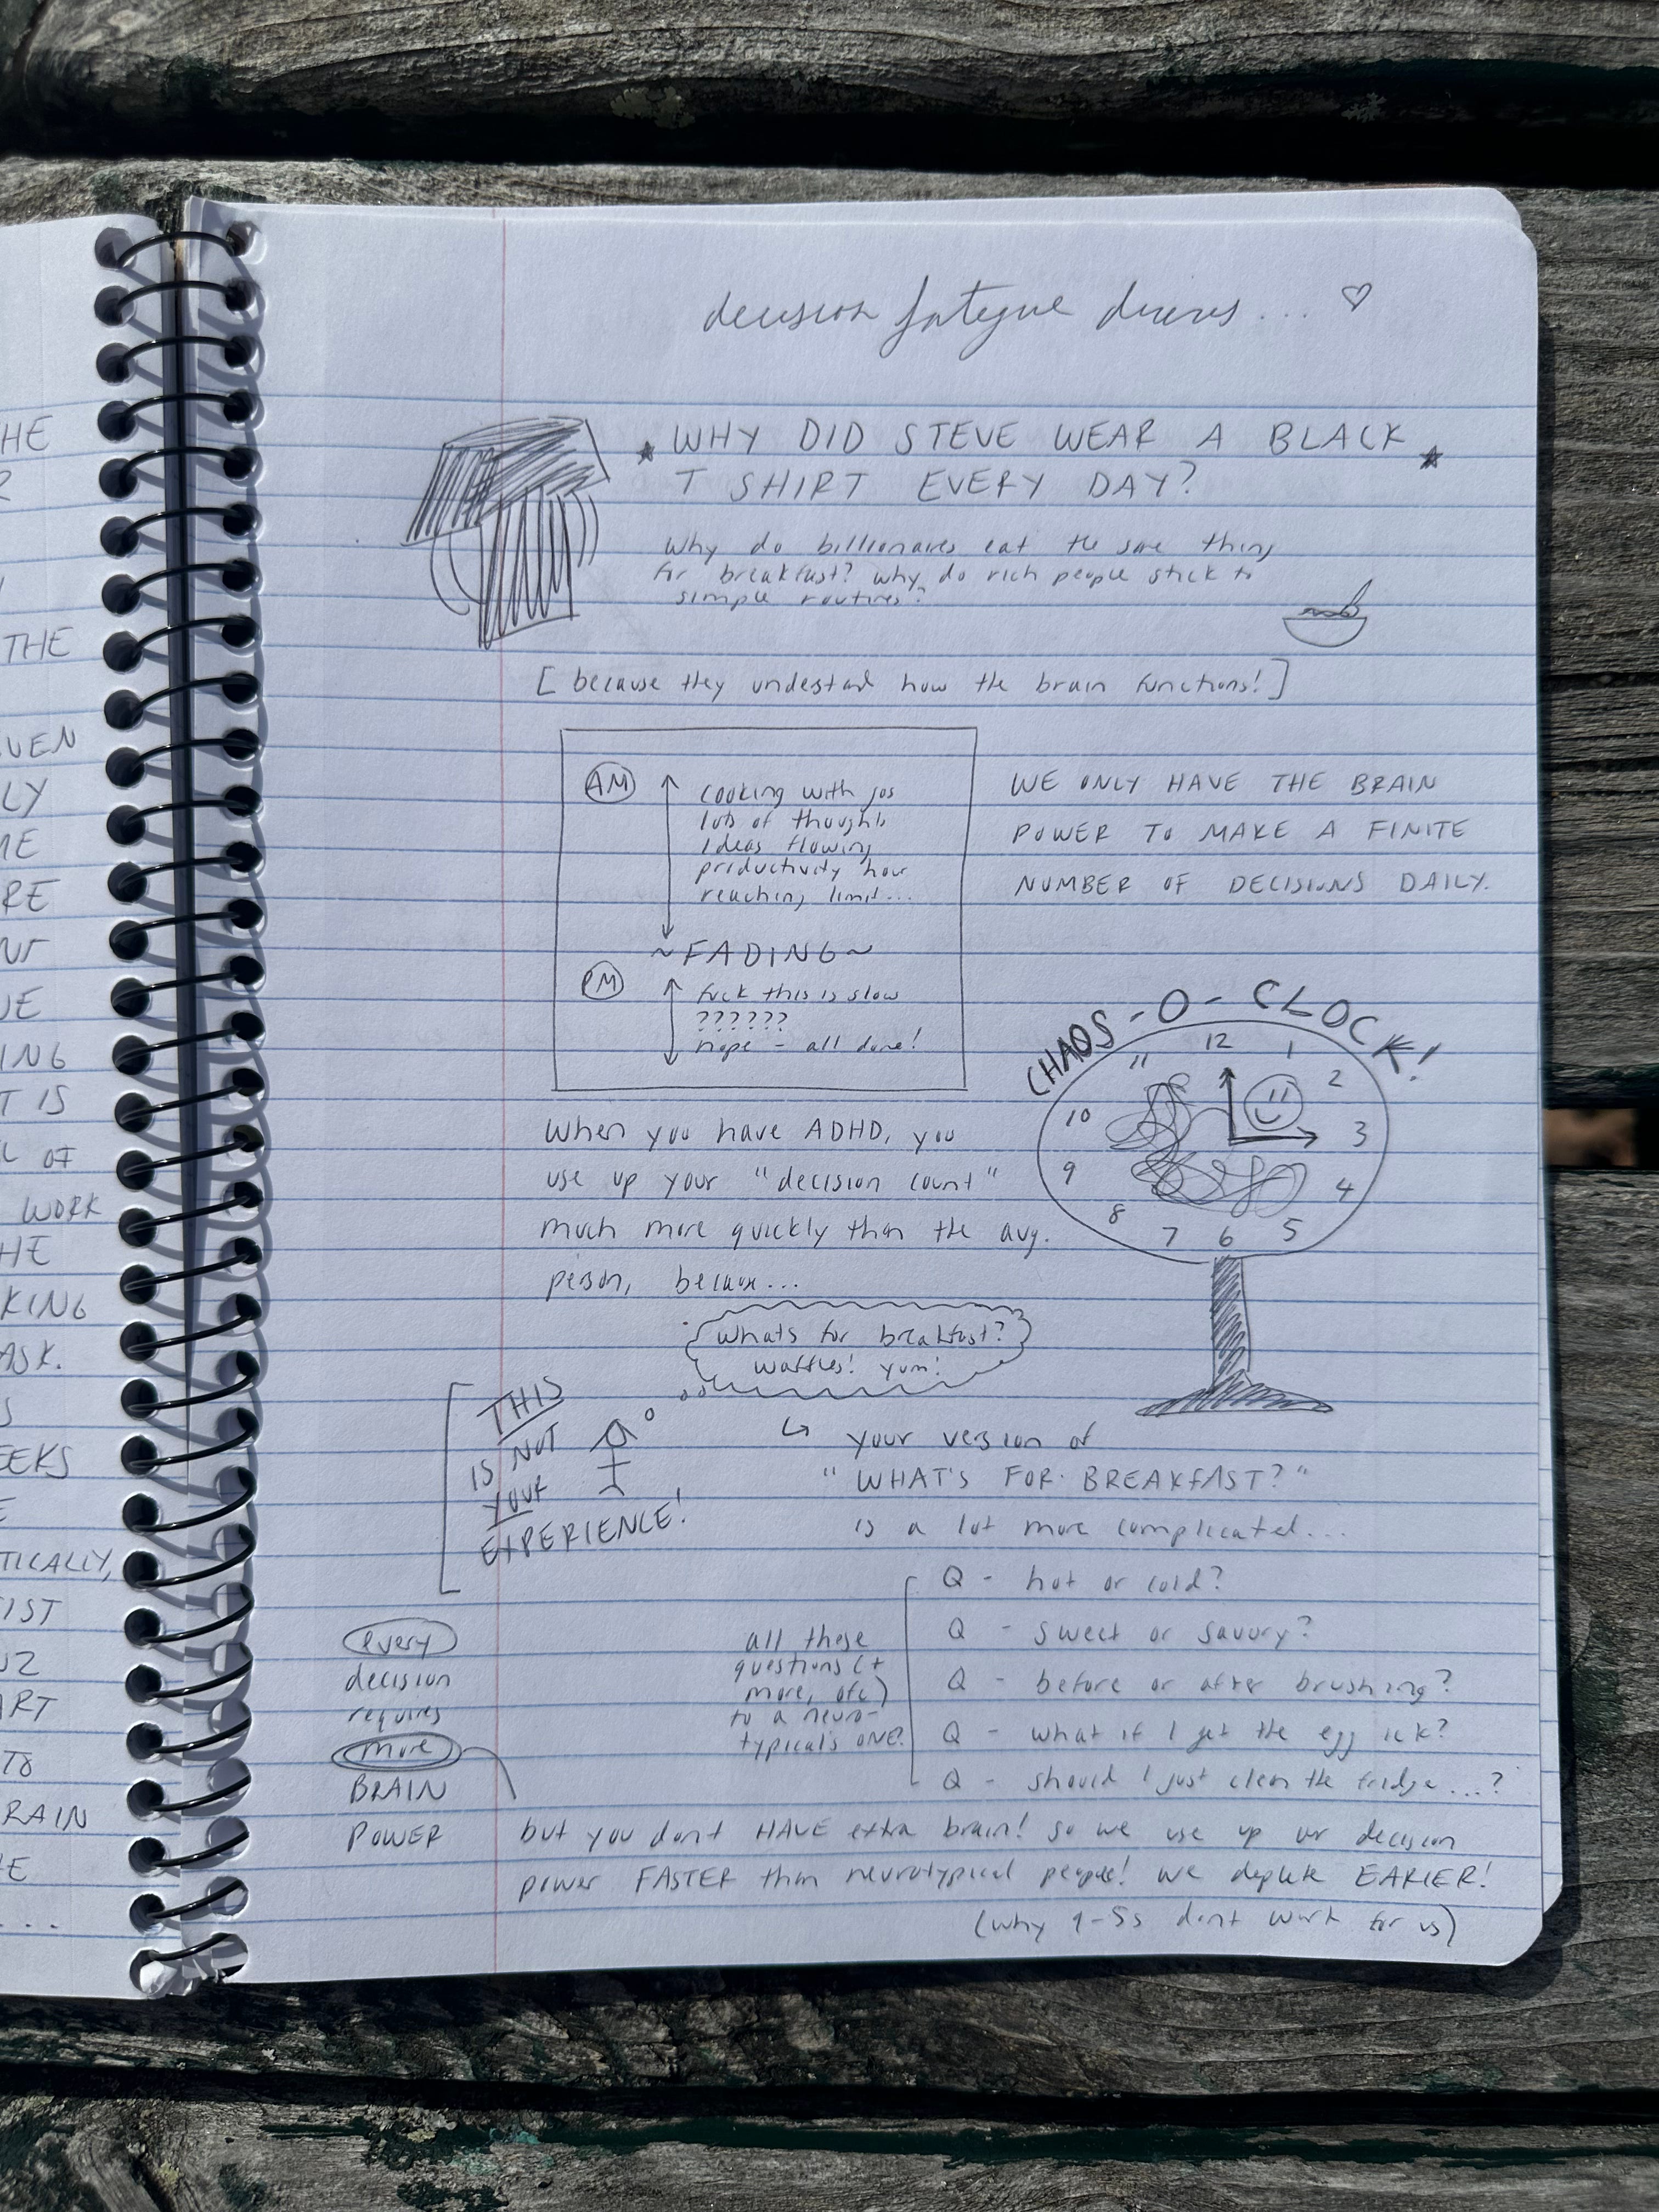 HE
R
THE
VEN
LY
ME
RE
UE
ING
T IS
L OF
WORK
HE
KING
ASK.
S
EEKS
E
TICALLY,
IST
ART
TO
RAIN
E
...
decision fatigue diaries... ♡
★ WHY DID STEVE WEAR A BLACK ★
T SHIRT EVERY DAY?
Why do billionaires eat the same thing
for breakfast? why do rich people stick to
simple routines?
[because they undestand how the brain functions!]
AM
cooking with gas
lots of thoughts
ideas flowing
productivity hour
reaching limit...
~FADING~
PM
fuck this is slow
??????
nope - all done!
WE ONLY HAVE THE BRAIN
POWER TO MAKE A FINITE
NUMBER OF DECISIONS DAILY.
CHAOS-O-CLOCK!
12
1
2
3
4
5
6
7
8
9
10
11
When you have ADHD, you
use up your "decision count"
much more quickly than the avg.
person, because...
whats for breakfast?
waffles! yum!
THIS
IS NOT
YOUR
EXPERIENCE!
↳ your version of
"WHAT'S FOR BREAKFAST?"
is a lot more complicated...
Q - hot or cold?
Q - sweet or savory?
Q - before or after brushing?
Q - what if I get the egg ick?
Q - should I just clean the fridge....?
all these
questions (+
more, etc)
to a neuro-
typical's ONE?
every
decision
requires
more
BRAIN
POWER
but you dont HAVE extra brain! so we use up our decision
power FASTER than neurotypical people! we deplete EARIER!
(why 9-5s dont work for us)